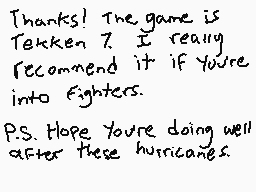 Thanks! The game is
Tekken 7. I really
recommend it if you're
into fighters.
P.S. Hope you're doing well
after these hurricanes.